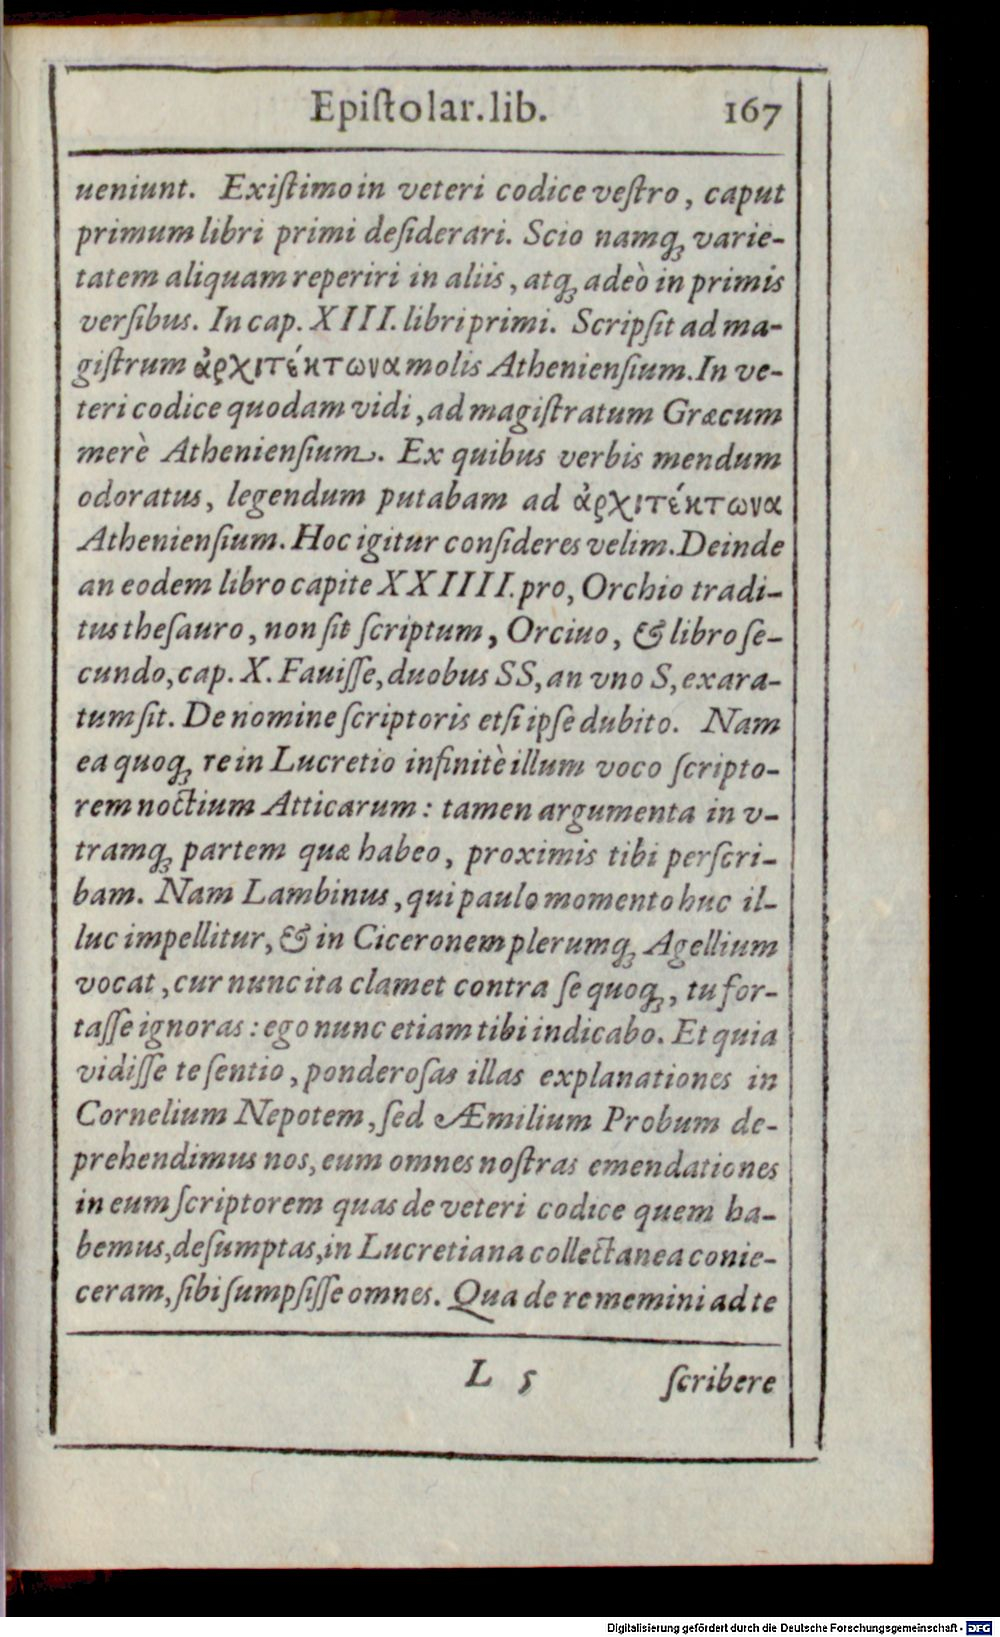 Epiſtolar. lib. 167
ueniunt. Exiſtimo in veteri codice veſtro, caput
primum libri primi deſiderari. Scio namq́; varie-
tatem aliquam reperiri in aliis, atq́; adeò in primis
verſibus. In cap. XIII. libri primi. Scripſit ad ma-
giſtrum ἀρχιτέκτωνα molis Athenienſium. In ve-
teri codice quodam vidi, ad magiſtratum Græcum
merè Athenienſium. Ex quibus verbis mendum
odoratus, legendum putabam ad ἀρχιτέκτωνα
Athenienſium. Hoc igitur conſideres velim. Deinde
an eodem libro capite XXIIII. pro, Orchio tradi-
tus theſauro, non ſit ſcriptum, Orciuo, & libro ſe-
cundo, cap. X. Fauiſſe, duobus SS, an vno S, exara-
tum ſit. De nomine ſcriptoris etſi ipſe dubito. Nam
ea quoq; re in Lucretio infinitè illum voco ſcripto-
rem noctium Atticarum: tamen argumenta in v-
tramq; partem quæ habeo, proximis tibi perſcri-
bam. Nam Lambinus, qui paulo momento huc il-
luc impellitur, & in Ciceronem plerumq; Agellium
vocat, cur nunc ita clamet contra ſe quoq;, tu for-
taſſe ignoras: ego nunc etiam tibi indicabo. Et quia
vidiſſe te ſentio, ponderoſas illas explanationes in
Cornelium Nepotem, ſed Æmilium Probum de-
prehendimus nos, eum omnes noſtras emendationes
in eum ſcriptorem quas de veteri codice quem ha-
bemus, deſumptas, in Lucretiana collectanea conie-
ceram, ſibi ſumpſiſſe omnes. Qua de re memini ad te
L 5 ſcribere
Digitalisierung gefördert durch die Deutsche Forschungsgemeinschaft - DFG